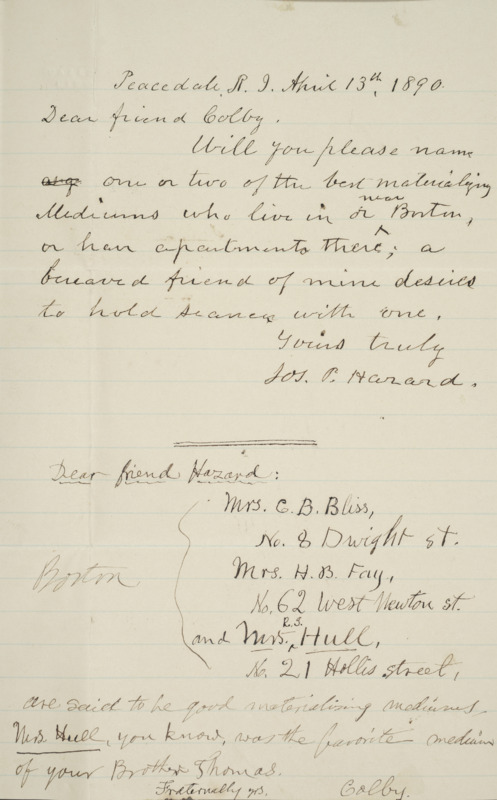 Peacedale, R. I. April 13th, 1890.
Dear friend Colby.
Will you please name
one or two of the best materializing
Mediums who live in or near Boston,
or have apartments there; a
bereaved friend of mine desires
to hold seances with one.
Yours truly
Jos. P. Hazard.
Dear friend Hazard:
Mrs. C. B. Bliss,
No. 8 Dwight st.
Mrs. H. B. Fay,
Boston
No. 62 West Newton st.
and Mrs. R.S. Hull,
No. 21 Hollis street,
are said to be good materializing mediums
Mrs. Hull, you know, was the favorite medium
of your Brother Thomas.
Fraternally yrs.
Colby.